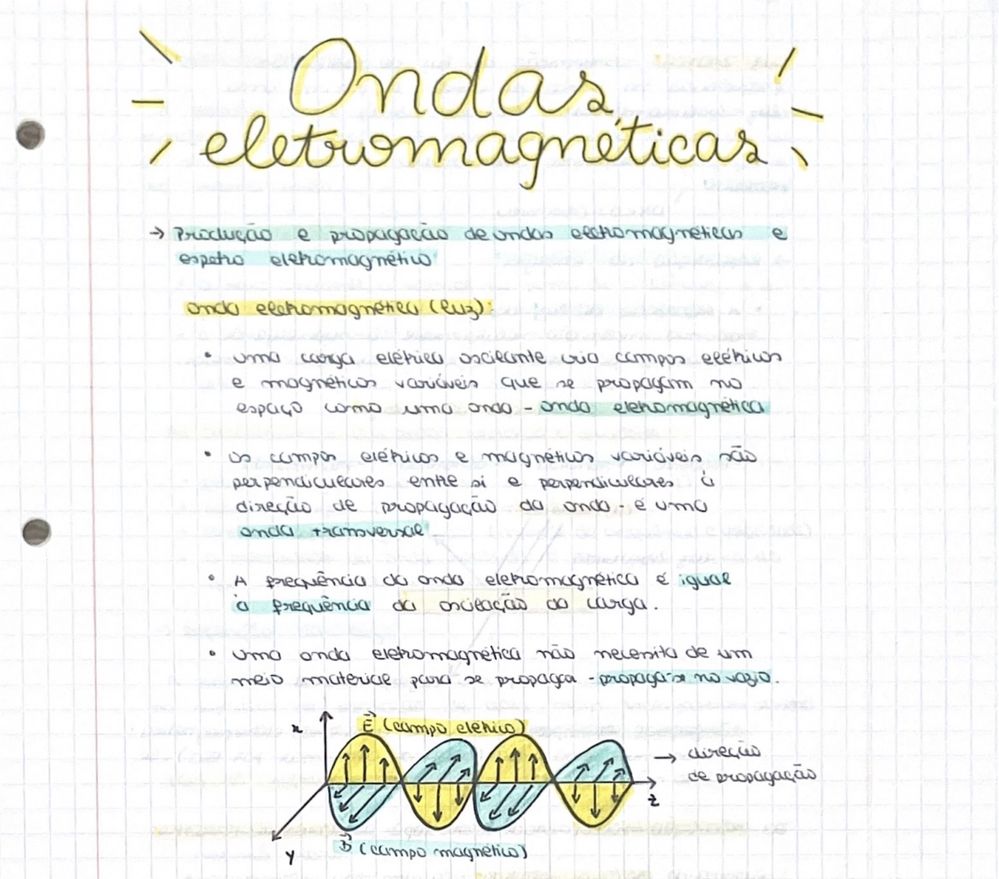 Ondas
eletromagnéticas
→ Produção e propagação de ondas eletromagnéticas e
espetro eletromagnético
onda eletromagnética (luz):
• uma carga elétrica oscilante cria campos elétricos
e magnéticos variáveis que se propagam no
espaço como uma onda - onda eletromagnética
• os campos elétricos e magnéticos variáveis são
perpendiculares entre si e perpendiculares à
direção de propagação da onda - é uma
onda transversal.
• A frequência da onda eletromagnética é igual
à frequência da oscilação da carga.
• uma onda eletromagnética não necessita de um
meio material para se propagar - propaga-se no vazio.
x
E⃗ (campo elétrico)
→ direção
de propagação
z
y
B⃗ (campo magnético)